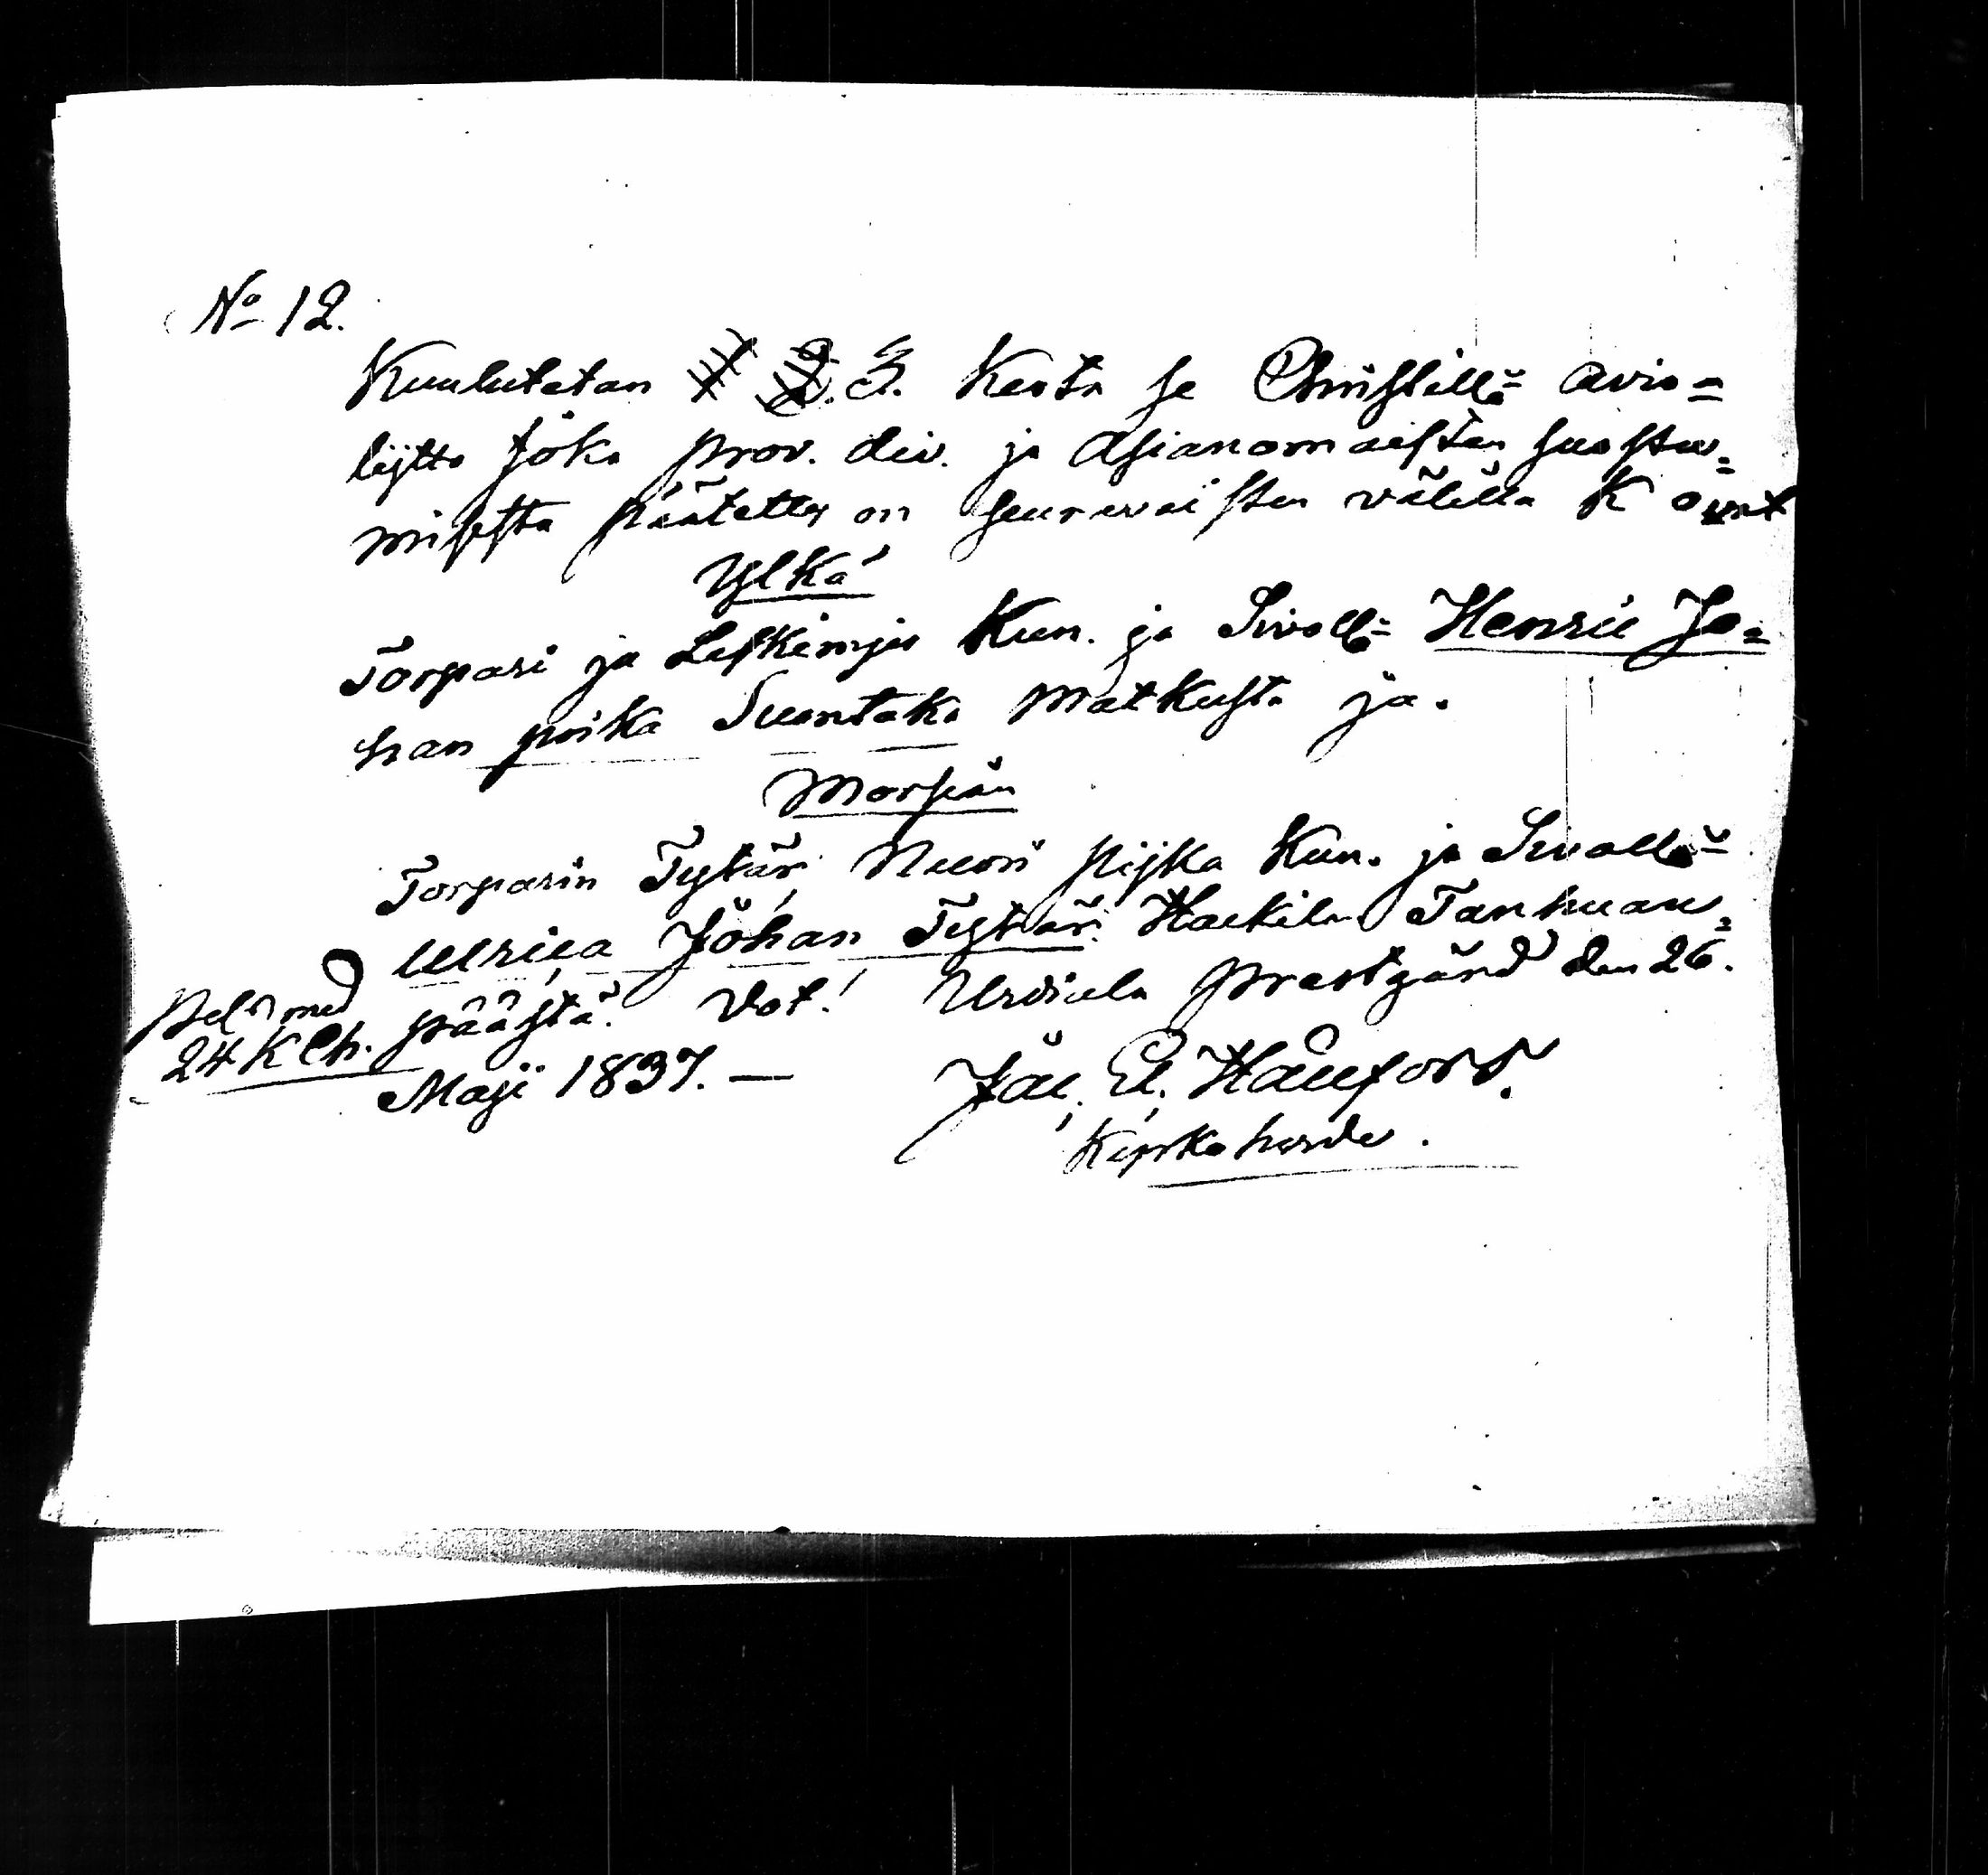 No 12.
Kuulutetan 1 2. 3. Kerta se Christill: avio=
lijtto joka prov. div. ja Asianomaisten suostu=
misesta päätetty on seurawaisten välillä K owat
Ylkä
Torpari ja Leskimjes Kun. ja Sivoll: Henric Jo=
han poika Suontaka Matkusta ja.
Morsian
Torparin Tytär, Nuori pijka Kun. ja Sivoll:
Ulrica Johan Tytär Tanhuan=
päästä. Vot! Urdiala Prestgård den 26.
Maji 1837. —
Jac. Ed. Haufors.
Kirkoherde.
med
24 K